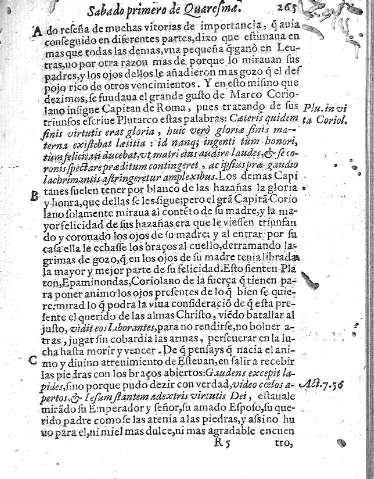 Sabado primero de Quaresma. 265
A do reseña de muchas vitorias de importancia, q̃ auia
conseguido en diferentes partes, dixo que estimaua en
mas que todas las demas, vna pequeña q̃ ganò en Leu-
tras, no por otra razon mas de porque lo mirauan sus
padres, y los ojos dellos le añadieron mas gozo q̃ el des
pojo rico de otros vencimientos. Y en esto mismo que
dezimos, se fundaua el grande gusto de Marco Corio-
lano insigne Capitan de Roma, pues tratando de sus
triunfos escriue Plutarco estas palabras: Cæteris quidem
finis virtutis erat gloria, huic verò gloriæ finis ma-
terna existebat lætitia: id nanq; ingenti tum honori,
tum felicitati ducebat, vt matri eius audire laudes, & se co-
ronis spectare præditum contingeret, ac ipsius præ gaudio
lachrimantis astringeretur amplexibus. Los demas Capi
Plu. in vi
ta Coriol.
B tanes suelen tener por blanco de las hazañas la gloria
y honra, que dellas se les sigue: pero el grã Capitã Corio
lano solamente miraua al contẽto de su madre, y la ma-
yor felicidad de sus hazañas era que le viessen triunfan
do y coronado los ojos de su madre: y al entrar por su
casa ella le echasse los braços al cuello, derramando la-
grimas de gozo, q̃ en los ojos de su madre tenia librada
la mayor y mejor parte de su felicidad. Esto sienten Pla
ton, Epaminondas, Coriolano de la fuerça q̃ tienen pa-
ra poner animo los ojos presentes de lo q̃ bien se quie-
re: mirad lo q̃ podra la viua consideraciõ de q̃ esta pre-
sente el querido de las almas Christo, viẽdo batallar al
justo, vidit eos laborantes, para no rendirse, no boluer a-
tras, jugar sin cobardia las armas, perseuerar en la lu-
cha hasta morir y vencer. De q̃ pensays q̃ nacia el ani-
C mo y diuino atreuimiento de Esteuan, en salir a recebir
las piedras con los braços abiertos: Gaudens excepit la-
pides, sino porque pudo dezir con verdad, video cœlos a-
pertos, & Iesum stantem à dextris virtutis Dei, estauale
Act. 7. 56
mirãdo su Emperador y señor, su amado Esposo, su que-
rido padre como se las atenia a las piedras, y assi no hu
uo para el, ni miel mas dulce, ni mas agradable encuen
R 5 tro,